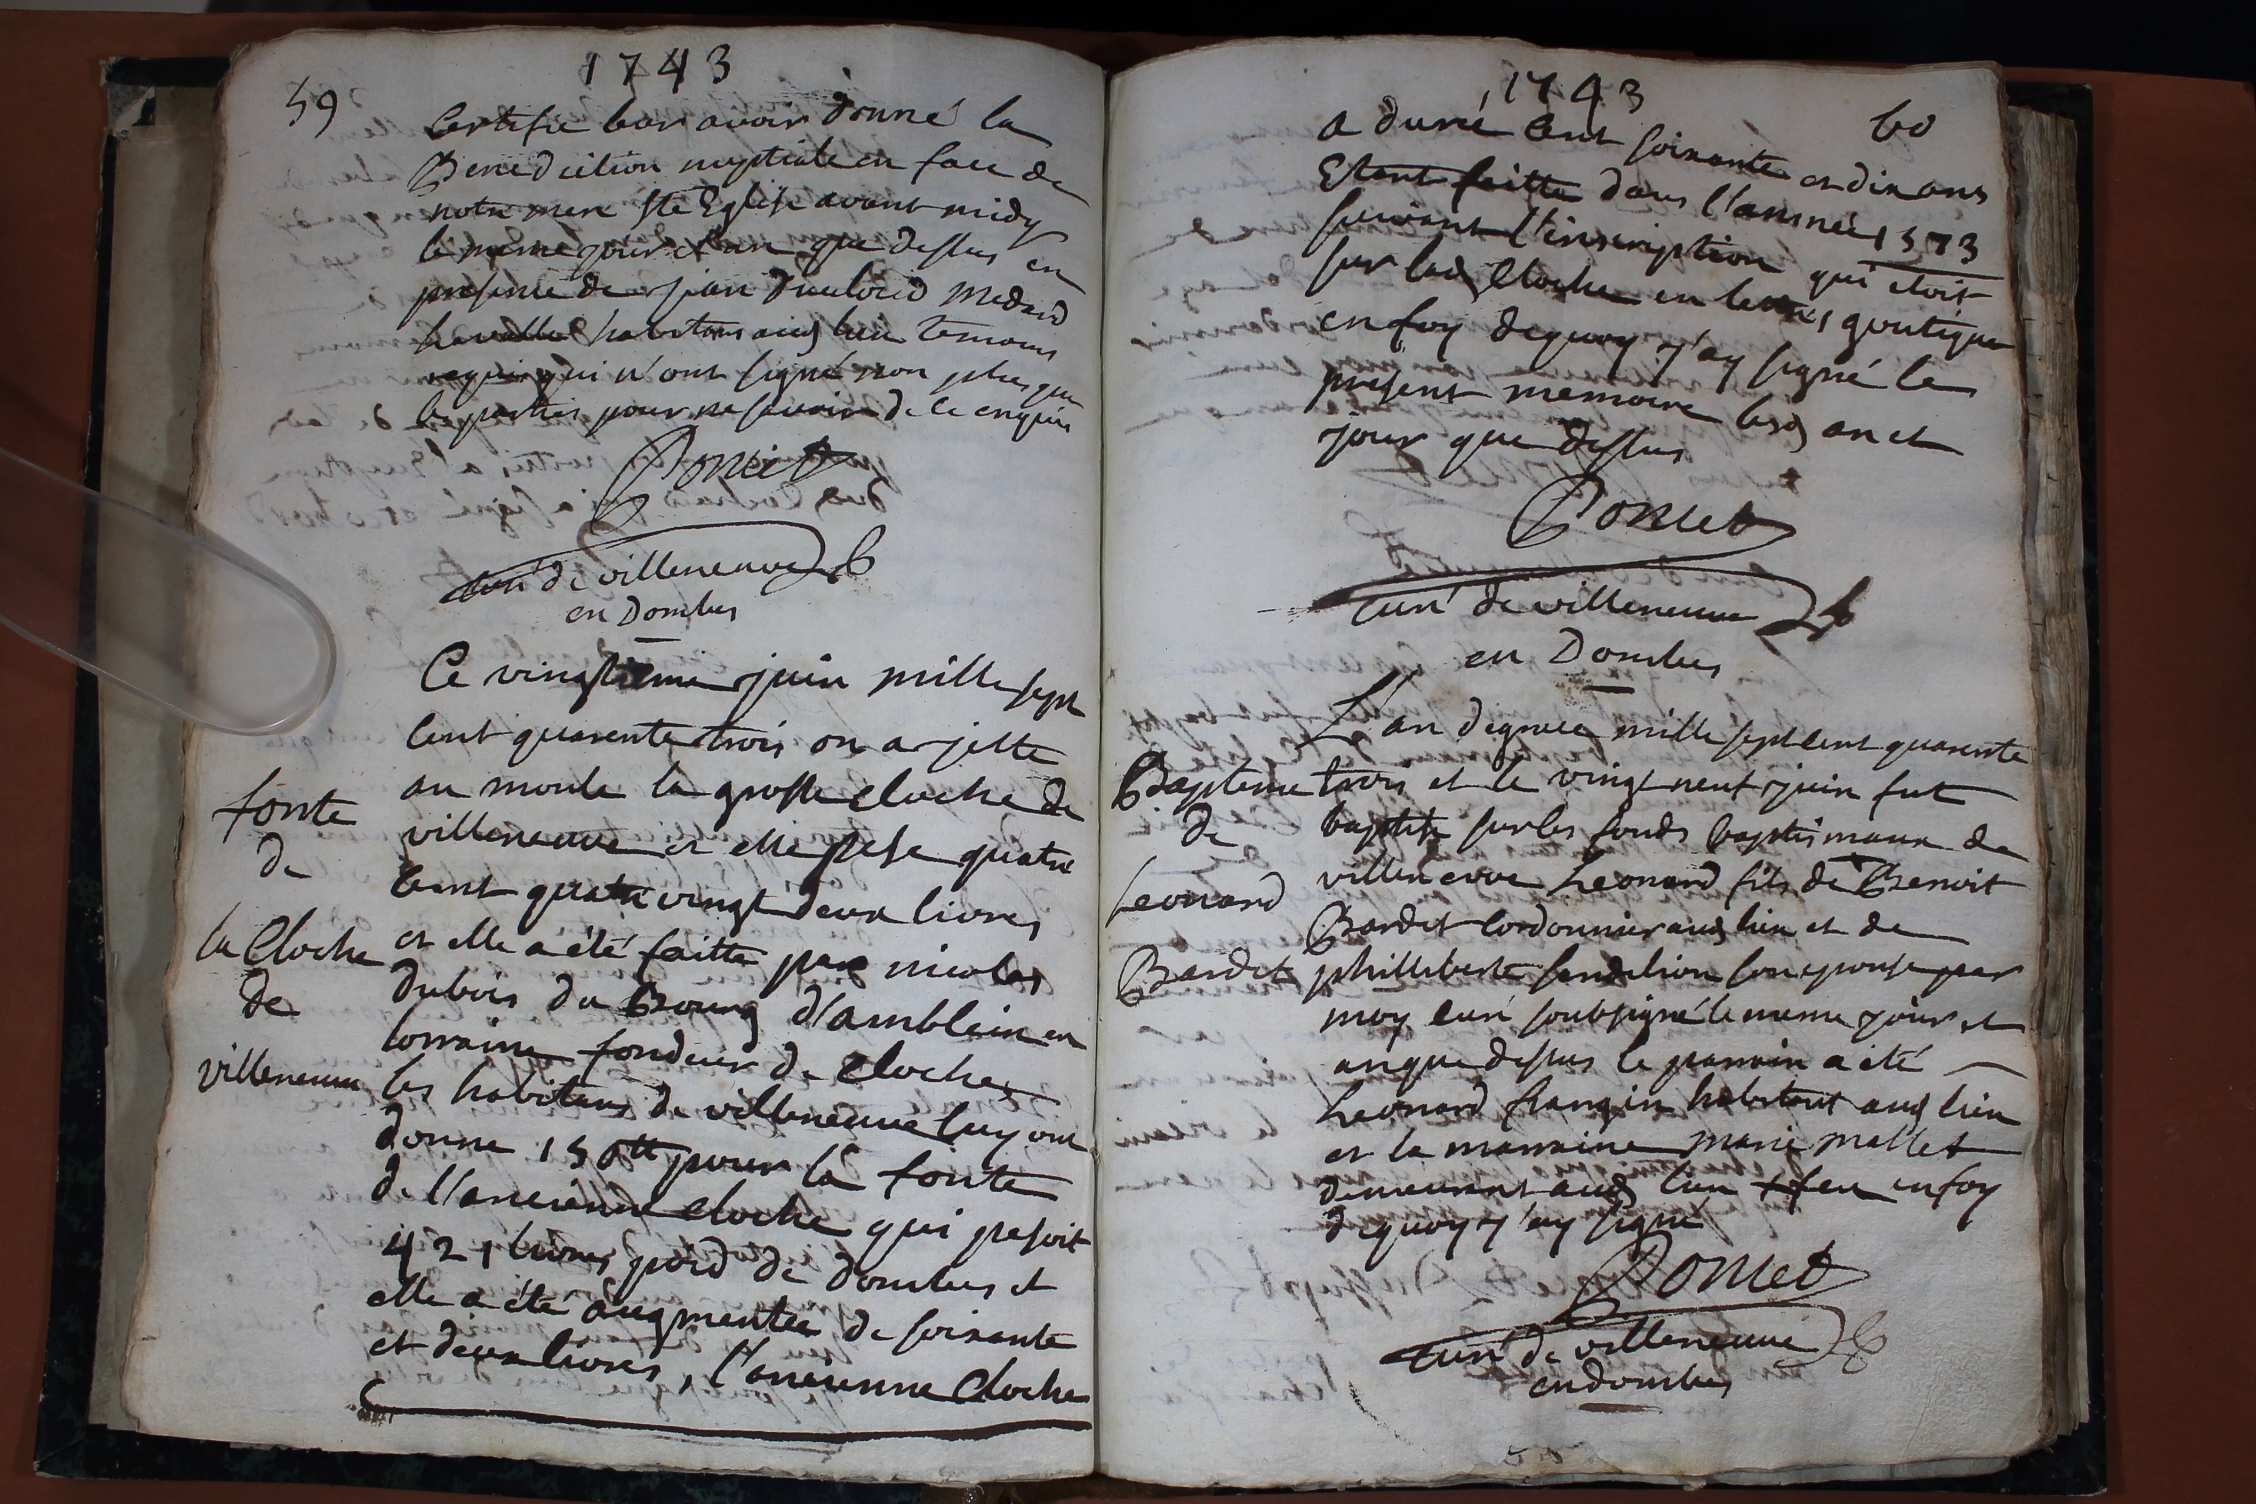 1743
59
Certifie leur avoir donné la
Benediction nuptiale en face de
notre mere Ste Eglise avant midy
le meme jour et an que dessus en
presence de jean Medard
habitans aud lieu temoins
requis qui n'ont signé non plus que
les parties pour ne scavoir de ce enquis
Poncet
curé de villeneuve
en Dombes
Ce vingtieme juin mille sept
cent quarente trois on a jette
au moule la grosse cloche de
villeneuve et elle pese quatre
cent quatre vingt deux livres
et elle a été faitte par nicolas
dubois du Bourg d'amblain en
lorraine fondeur de cloches
les habitans de villeneuve luy ont
donne 150tt pour la fonte
de l'ancienne cloche qui pesoit
421 livres poid de dombes et
elle a été augmentée de soixante
et deux livres, l'ancienne cloche
fonte
de
la Cloche
de
villeneuve
1743
60
a duré cent soixante et dix ans
Etant faitte dans l'année 1573
suivant l'inscription qui etoit
sur lad cloche en lettres goutique
en foy de quoy j'ay signé le
present memoire lesd an et
jour que dessus
Poncet
curé de villeneuve
en Dombes
L'an de grace mille sept cent quarente
trois et le vingt neuf juin fut
baptisé sur les fonds baptismaux de
villeneuve Leonard fils de Benoit
Bardet cordonnier aud lieu et de
phillberte sandelion son epouse par
moy curé soubsigné le meme jour et
an que dessus le parrain a été
Leonard frangin habitant aud lieu
et la marraine marie mallet
demeurant aud lieu en foy
de quoy j'ay signé
Poncet
curé de villeneuve
en dombes
Bapteme
de
Leonard
Bardet